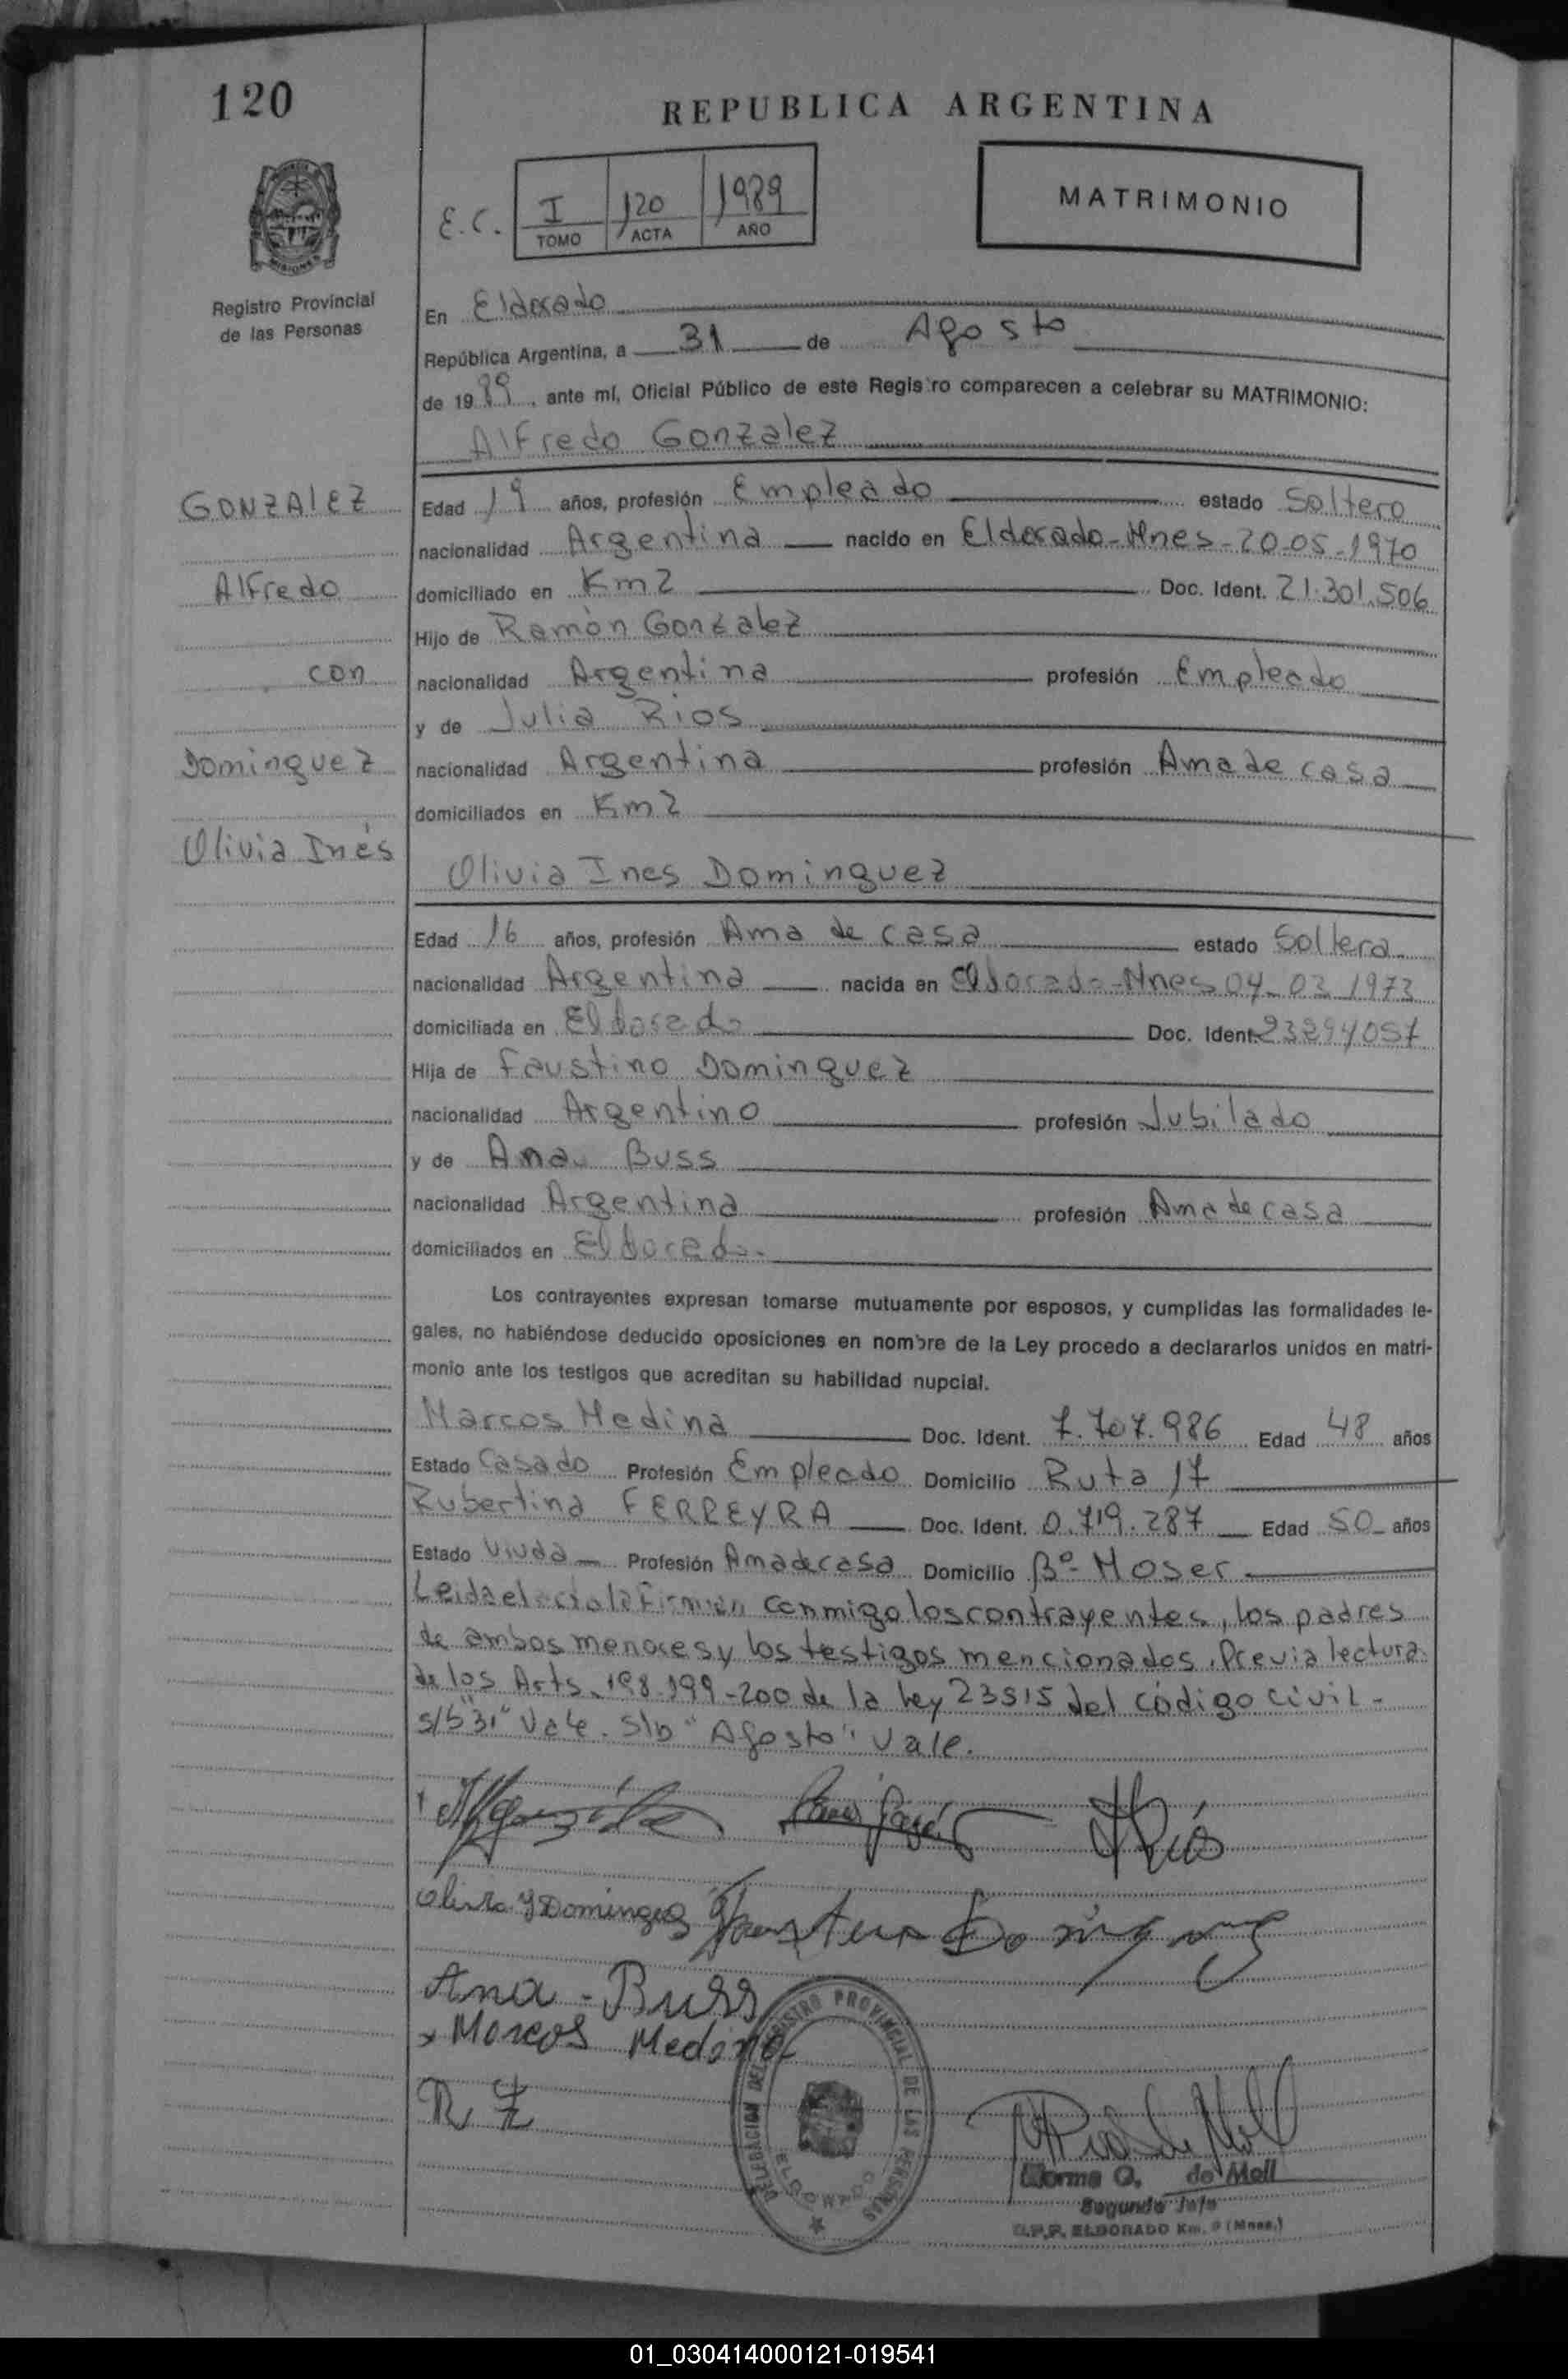 120
REPUBLICA ARGENTINA
E.C. I 120 1989
TOMO ACTA AÑO
MATRIMONIO
MISIONES
Registro Provincial
de las Personas
En Eldorado
República Argentina, a 31 de Agosto
de 1989, ante mí, Oficial Público de este Registro comparecen a celebrar su MATRIMONIO:
Alfredo Gonzalez
GONZALEZ
Alfredo
con
Dominguez
Olivia Inés
Edad 19 años, profesión Empleado estado Soltero
nacionalidad Argentina nacido en Eldorado-Mnes-20-05-1970
domiciliado en Km2 Doc. Ident. 21.301.506
Hijo de Ramòn Gonzalez
nacionalidad Argentina profesión Empleado
y de Julia Rios
nacionalidad Argentina profesión Ama de casa
domiciliados en Km2
Olivia Ines Dominguez
Edad 16 años, profesión Ama de casa estado Soltera
nacionalidad Argentina nacida en Eldorado-Mnes 04-03-1973
domiciliada en Eldorado Doc. Ident. 23294057
Hija de Faustino Dominguez
nacionalidad Argentino profesión Jubilado
y de Ana Buss
nacionalidad Argentina profesión Ama de casa
domiciliados en Eldorado.
Los contrayentes expresan tomarse mutuamente por esposos, y cumplidas las formalidades le-
gales, no habiéndose deducido oposiciones en nombre de la Ley procedo a declararlos unidos en matri-
monio ante los testigos que acreditan su habilidad nupcial.
Marcos Medina Doc. Ident. 7.707.986 Edad 48 años
Estado Casado Profesión Empleado Domicilio Ruta 17
Rubertina FERREYRA Doc. Ident. 0.719.287 Edad 50 años
Estado Viuda Profesión Ama de casa Domicilio Bº- Moser
Leida el acta la firman conmigo los contrayentes, los padres
de ambos menores y los testigos mencionados. Previa lectura
de los Arts. 198-199-200 de la Ley 23515 del código civil-
s/b "31" Vale. S/b "Agosto" Vale.
Olivia I Dominguez Faustino Dominguez
Ana - Buss
x Marcos Medina
R F
DELEGACION DEL REGISTRO PROVINCIAL DE LAS PERSONAS
ELDORADO
Norma O. de Moll
Segundo Jefe
R.P.P. ELDORADO Km. 9 (Mnes.)
01_030414000121-019541